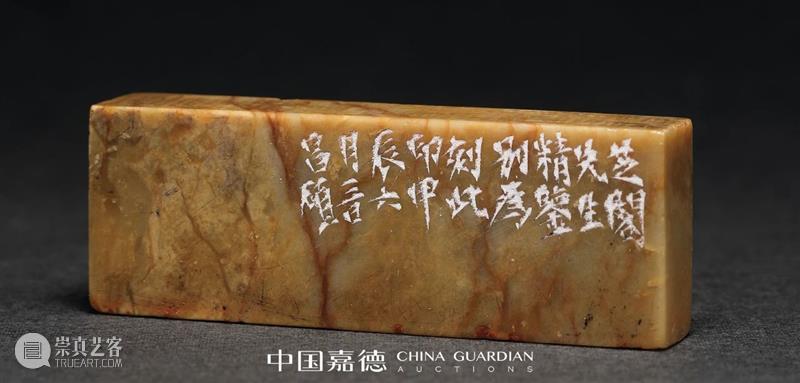 芝閣
先生
精鑒
別為
刻此
印甲
辰六
月
昌碩
崇真艺客
TRUEART.COM
中国嘉德 CHINA GUARDIAN
AUCTIONS